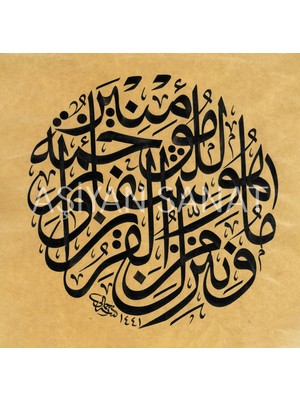 وننزل من القرآن
ما هو شفاء
ورحمة للمؤمنين
١٤٤١
AŞİYAN SANAT